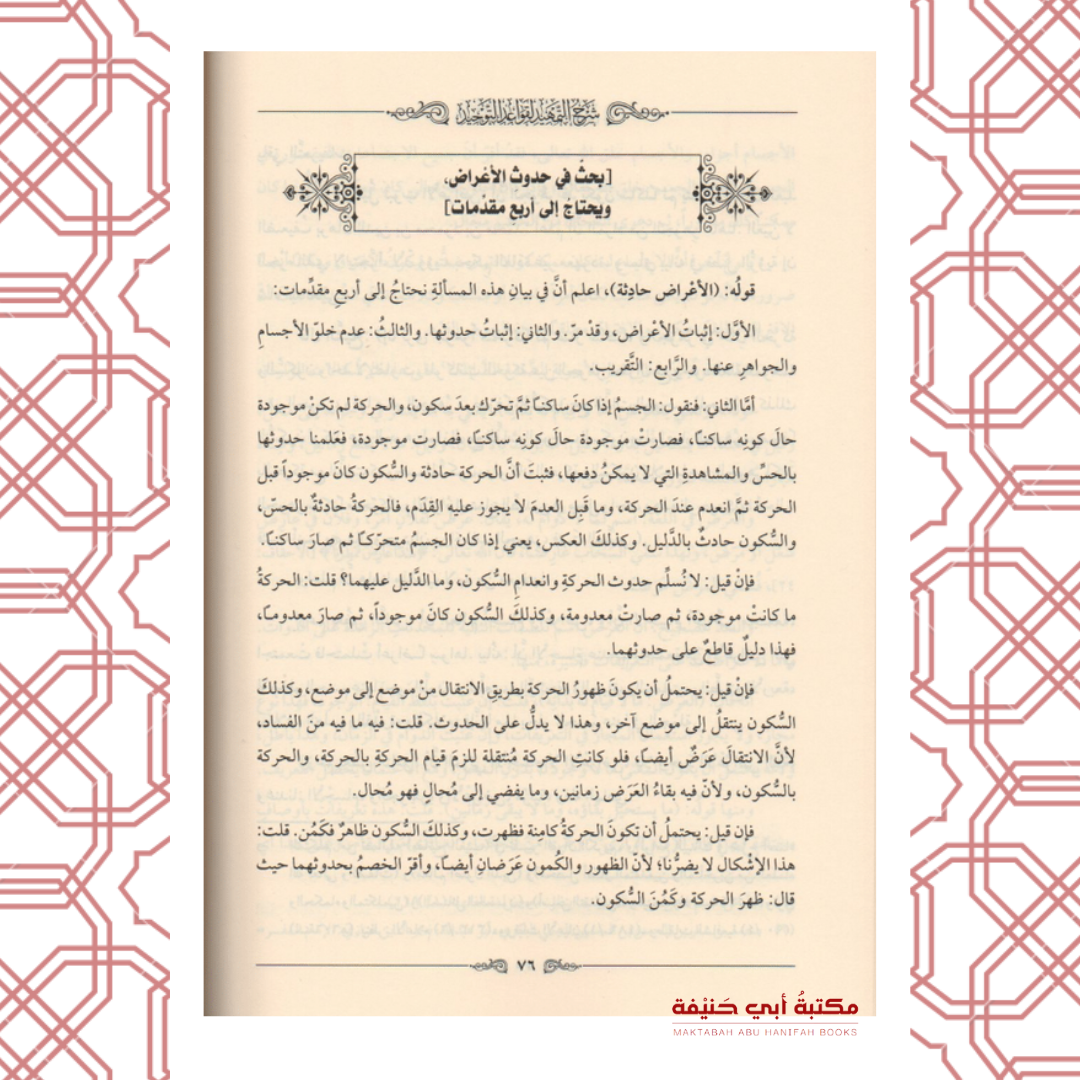 شرح التمهيد لقواعد التوحيد
[بحثٌ في حدوث الأعْراض،
ويحتاجُ إلى أربع مقدّمات]
قولُه: (الأعْراض حادِثة)، اعلم أنَّ في بيانِ هذه المسألةِ نحتاجُ إلى أربعِ مقدِّمات:
الأوَّل: إثباتُ الأعْراض، وقدْ مرّ. والثاني: إثباتُ حدوثِها. والثالثُ: عدم خلوّ الأجسامِ
والجواهرِ عنها. والرَّابع: التَّقريب.
أمَّا الثاني: فنقول: الجسمُ إذا كانَ ساكنـاً ثمَّ تحرّك بعدَ سكون، والحركة لم تكنْ موجودة
حالَ كونِه ساكنـًا، فصارتْ موجودة حالَ كونِه ساكنـًا، فصارت موجودة، فعَلمنا حدوثها
بالحسِّ والمشاهدةِ التي لا يمكنُ دفعها، فثبتَ أنَّ الحركة حادثة والسُّكون كانَ موجوداً قبل
الحركة ثمَّ انعدم عندَ الحركة، وما قَبِل العدمَ لا يجوز عليه القِدَم، فالحركةُ حادثةٌ بالحسّ،
والسُّكون حادثٌ بالدَّليل. وكذلكَ العكس، يعني إذا كان الجسمُ متحرّكـاً ثم صارَ ساكنـًا.
فإنْ قيل: لا نُسلِّم حدوث الحركةِ وانعدامِ السُّكون، وما الدَّليل عليهما؟ قلت: الحركةُ
ما كانتْ موجودة، ثم صارتْ معدومة، وكذلكَ السُّكون كانَ موجوداً، ثم صارَ معدومـًا،
فهذا دليلٌ قاطعٌ على حدوثهما.
فإنْ قيل: يحتملُ أن يكونَ ظهورُ الحركة بطريقِ الانتقال منْ موضع إلى موضع، وكذلكَ
السُّكون ينتقلُ إلى موضع آخر، وهذا لا يدلُّ على الحدوث. قلت: فيه ما فيه منَ الفساد،
لأنَّ الانتقالَ عَرَضٌ أيضـًا، فلو كانتِ الحركة مُنتقلة للزمَ قيام الحركةِ بالحركة، والحركة
بالسُّكون، ولأنّ فيه بقاءُ العَرَض زمانين، وما يفضي إلى مُحالٍ فهو مُحال.
فإن قيل: يحتملُ أن تكونَ الحركةُ كامِنة فظهرت، وكذلكَ السُّكون ظاهرٌ فكَمُن. قلت:
هذا الإشْكال لا يضرُّنا؛ لأنّ الظهور والكُمون عَرَضانِ أيضـًا، وأقرّ الخصمُ بحدوثهما حيث
قال: ظهرَ الحركة وكَمُنَ السُّكون.
٧٦
مكتبةُ أبي حَنيْفة
MAKTABAH ABU HANIFAH BOOKS